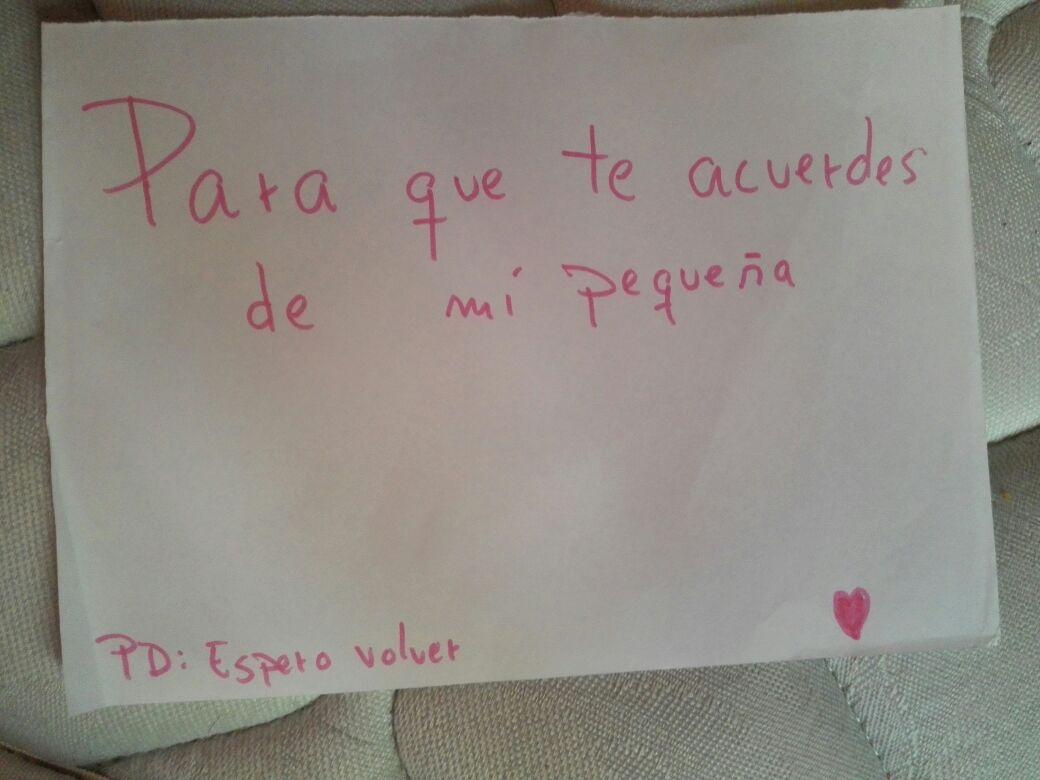 Para que te acuerdes
de mi pequeña
PD: Espero volver